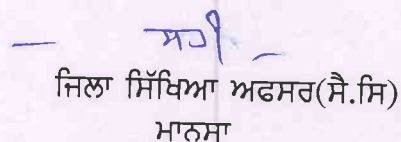 ਸਹੀ
ਜਿਲਾ ਸਿੱਖਿਆ ਅਫਸਰ(ਸੈ.ਸਿ)
ਮਾਨਸਾ